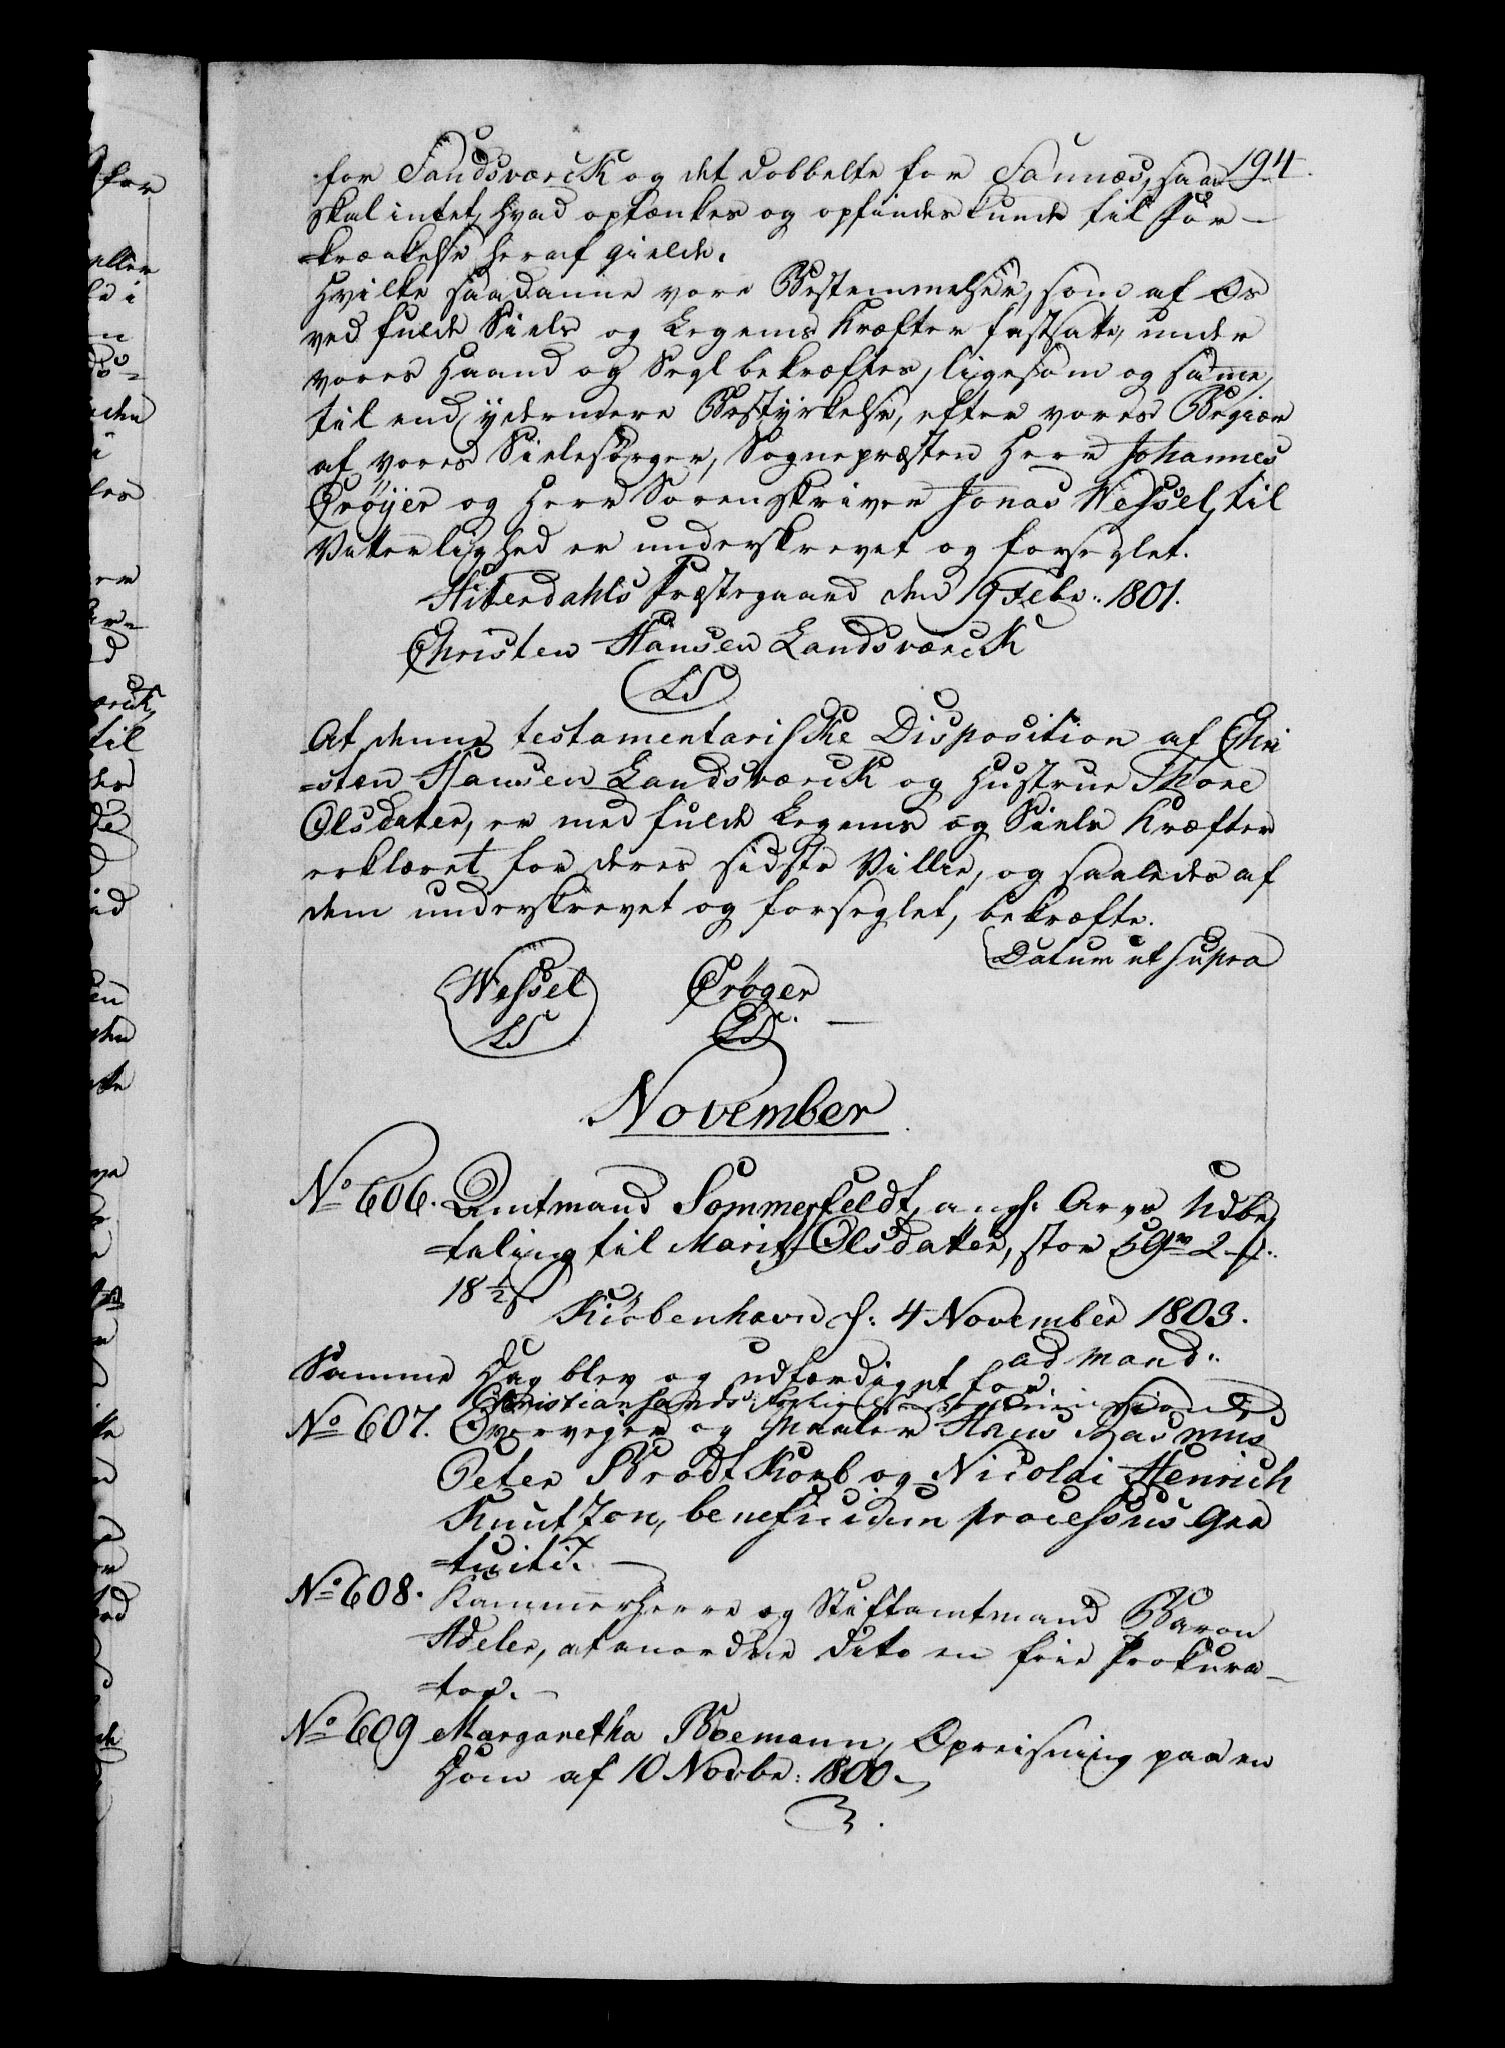 194.
for Sandsværck og det dobbelte for Sannæs, saa
skal intet, hvad optænkes og opfindes kunde til For-
=krænkelse heraf gielde.
Hvilke saadanne vore Bestemmelser, som af Os
ved fulde Siels og Legems Kræfter fastsatte, under
vores Haand og Segl bekræftes, ligesom og samme,
til end ydermere Bestyrkelse, efter vores Begiær
af vores Sielesørger, Sognepræsten Herr Johannes
Crøyer og Herr Sorenskriver Jonas Wessel, til
Vitterlighed er underskrevet og forseglet.
Hiterdahls Præstegaard den 19 Febr: 1801.
Christen Hansen Landsværck
LS
At denne testamentariske Disposition af Chri
=sten Hansen Landsværck og Hustrue Thore
Olsdatter, er med fulde Legems og Siels Kræfter
erklæret for deres sidste Villie, og saaledes af
dem underskrevet og forseglet, bekræfte.
Datum ut supra
Wessel Crøger
LS LS.
November
No 606. Amtmand Sommerfeldt, angl. Arve Udbe
=taling til Marit Olsdatter, stor 59 rd 2 f.
18 1/2 s.
Kiöbenhavn d: 4 November 1803.
Samme Dag blev og udfærdiget for
ad Mand:
Christiansands Forligelses Commission
No 607. Overveyer og Maaler Hans Rasmus
Peter Brodtkorb og Nicolai Henrich
Knutzon, beneficium processus Gra
=tuiti.
No 608. Kammerherre og Stiftamtmand Baron
Adeler, at anordne dito en frie Prokura-
=tor.
No 609 Margaretha Boemann, Opreisning paa en
Dom af 10 Novbr: 1800.